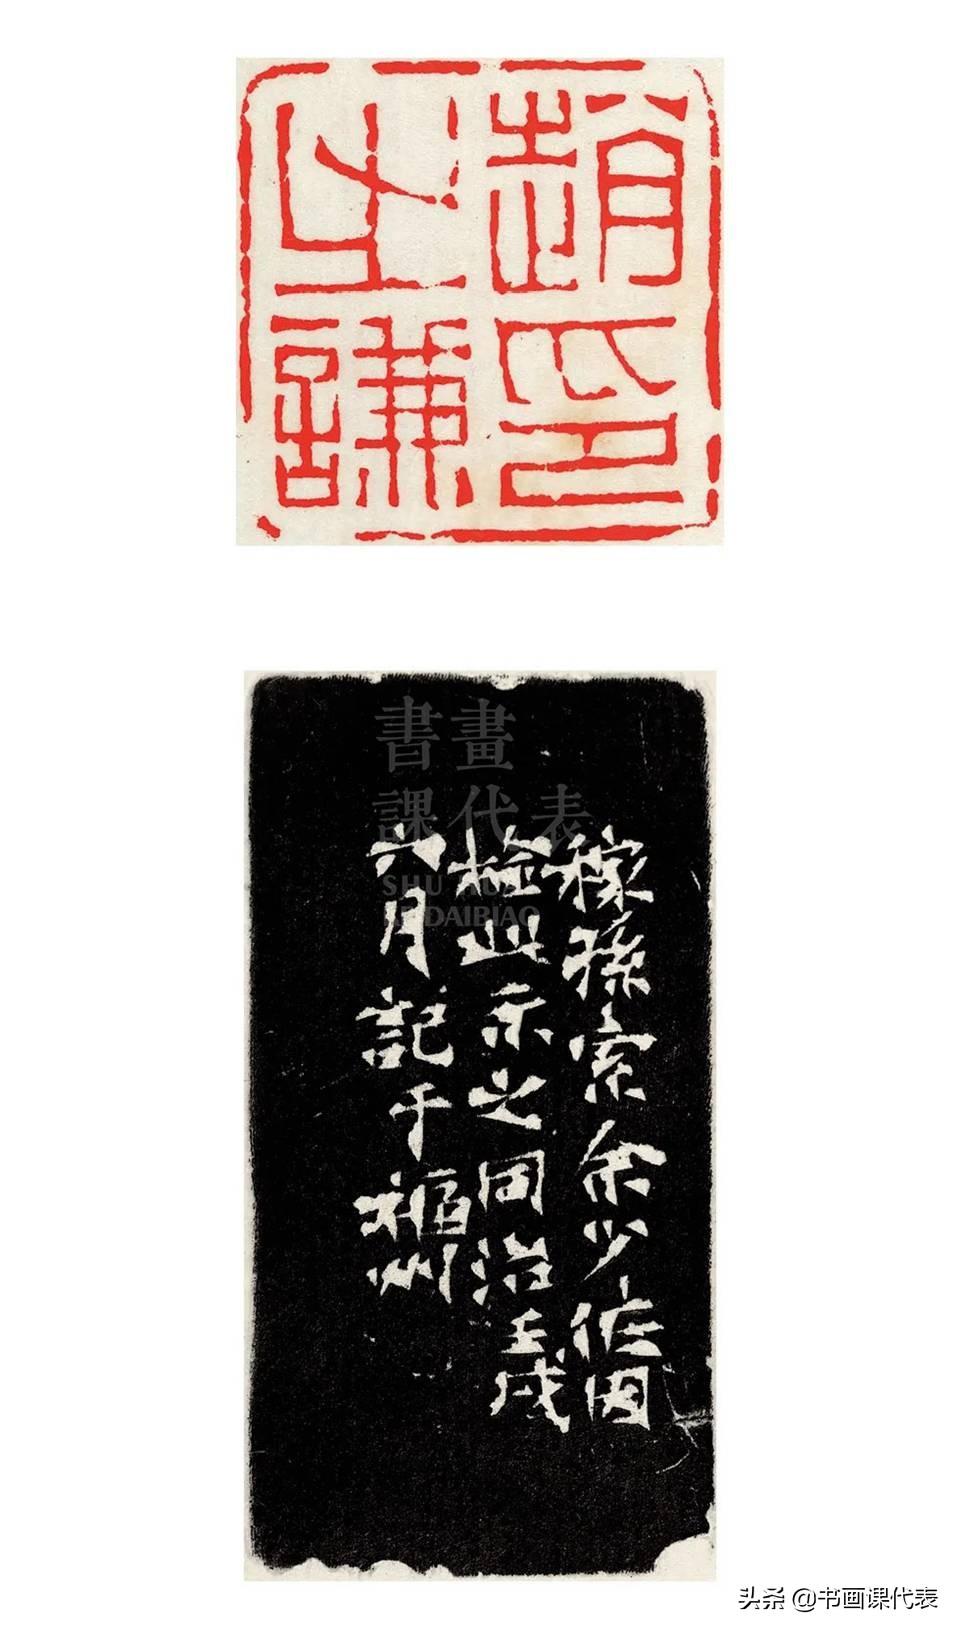 趙印
之謙
書畫
課代表
SHU HUA
KE DAIBIAO
稼孫索余少作因
檢此示之同治壬戌
六月記于福州
头条 @书画课代表